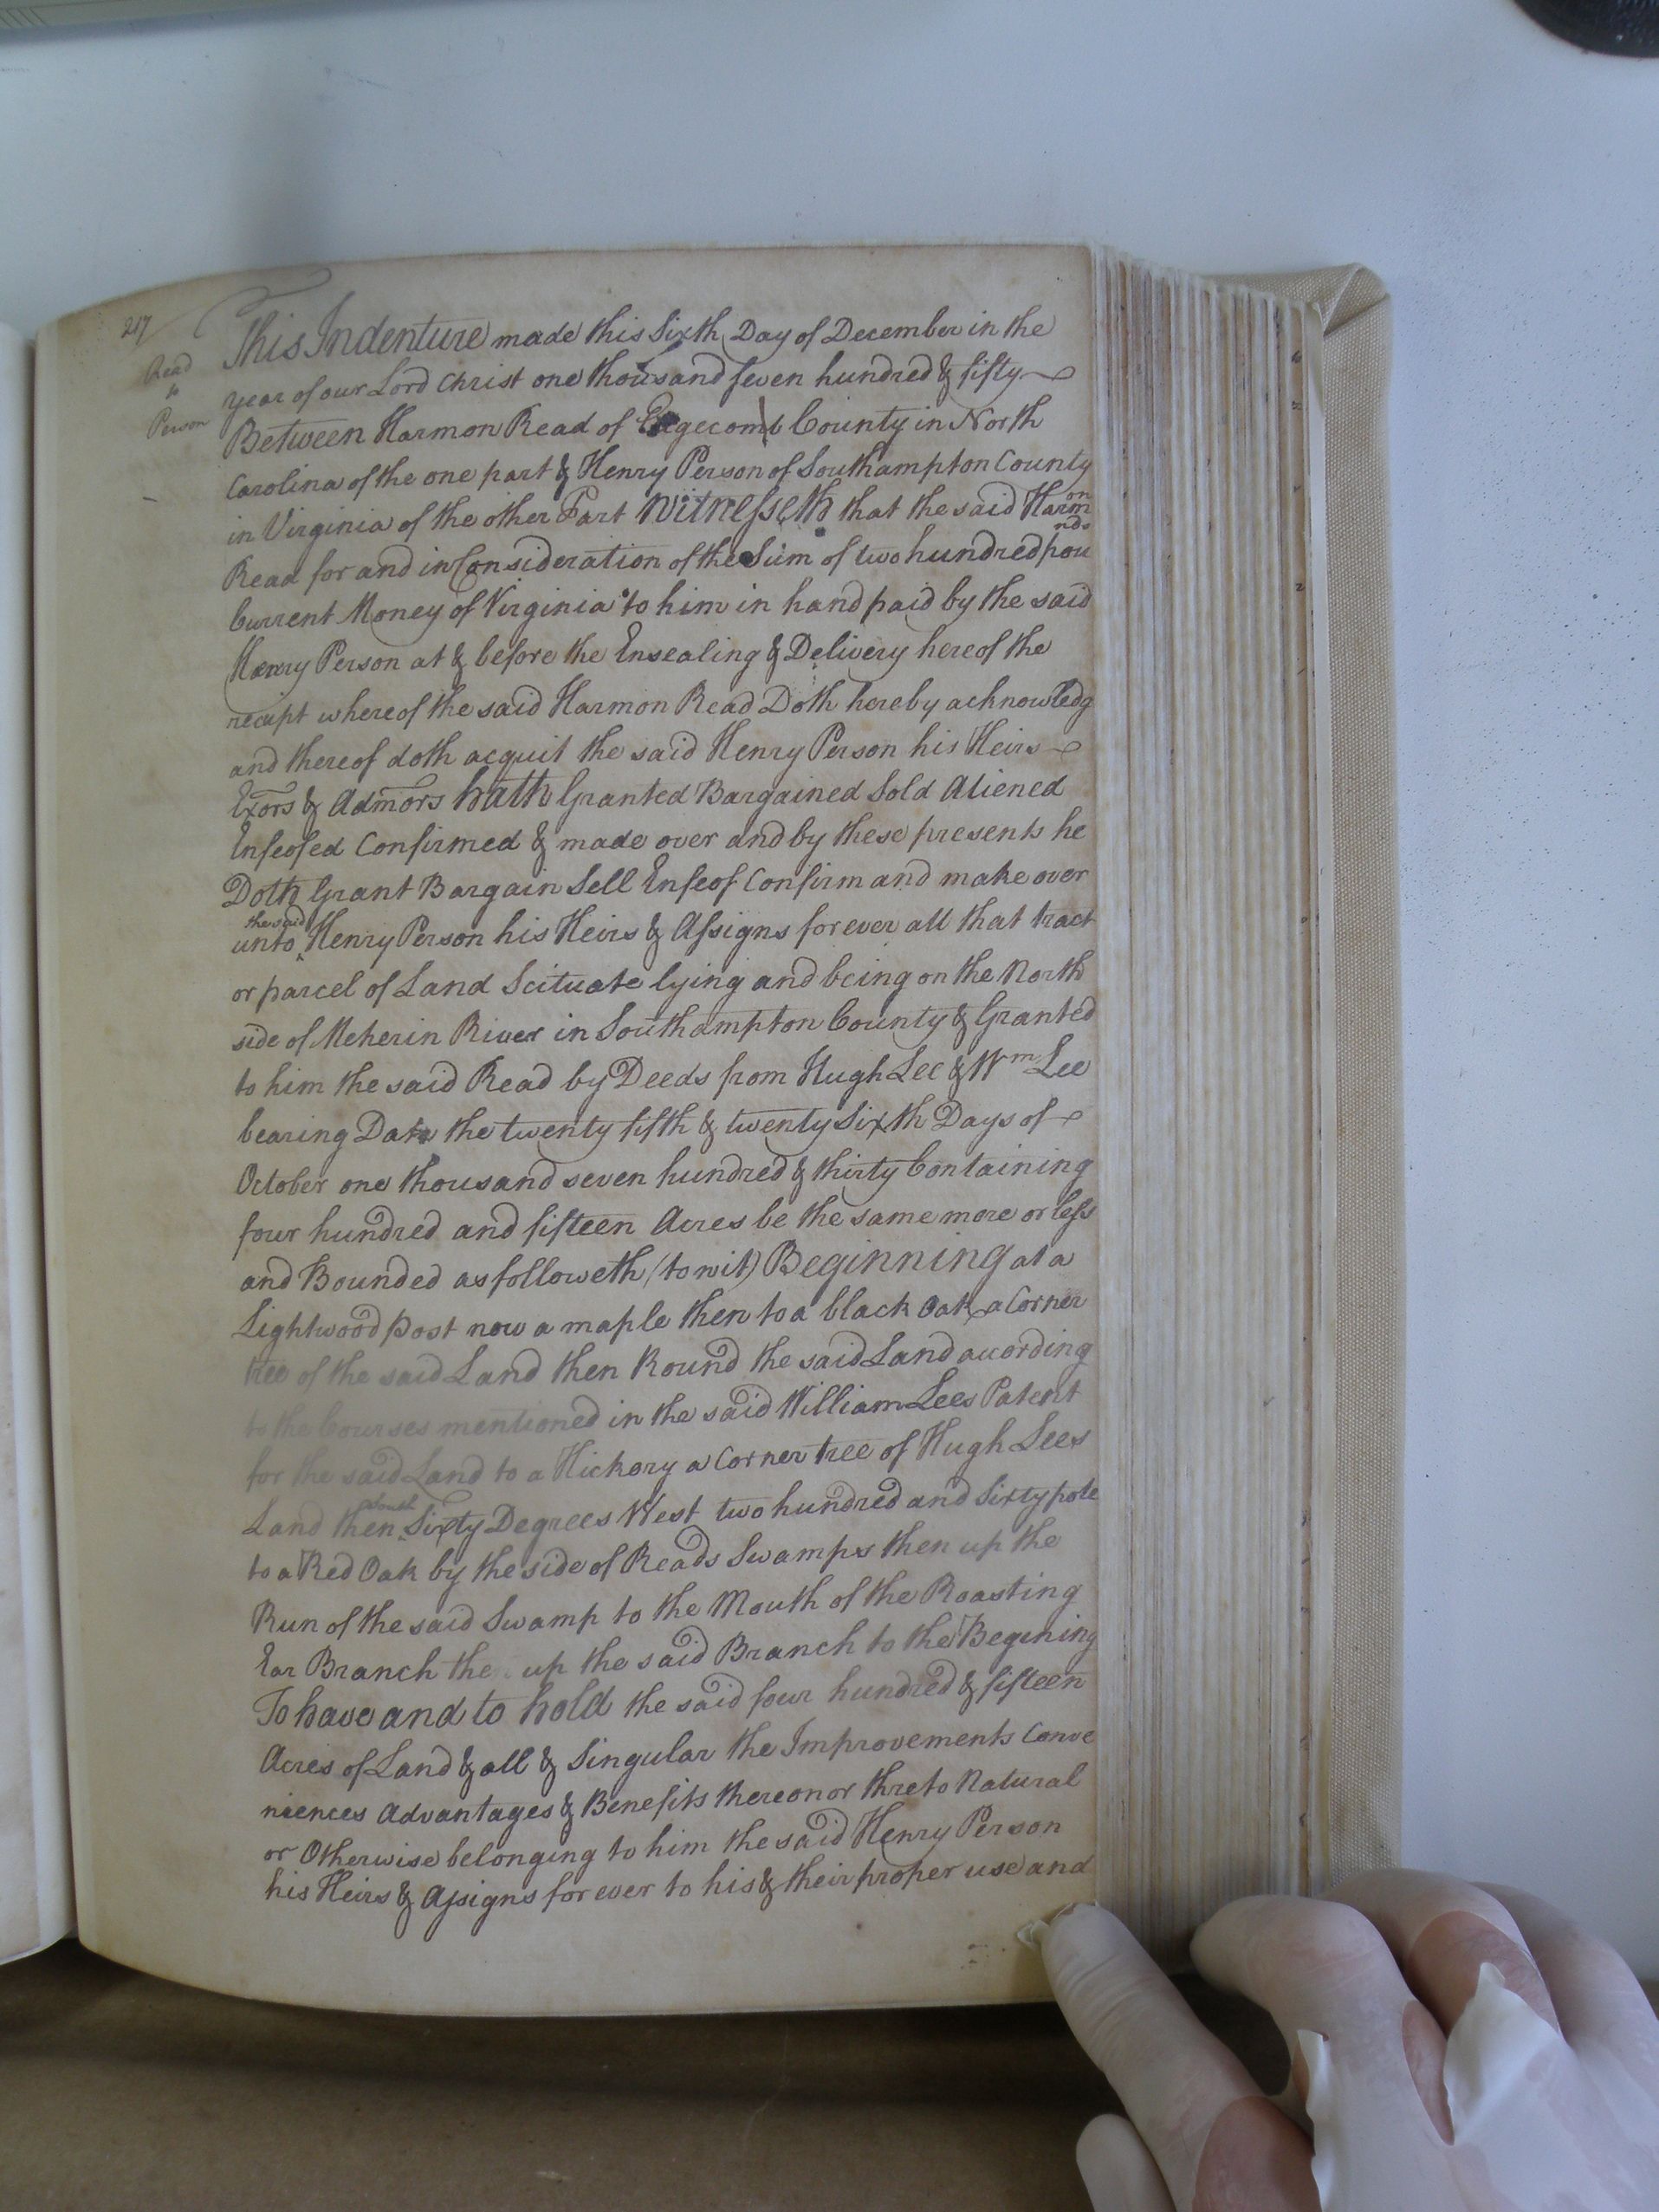 217
Read
to
Person
This Indenture made this Sixth Day of December in the
year of our Lord Christ one thousand seven hundred & fifty
Between Harmon Read of Edgecomb County in North
Carolina of the one part & Henry Person of Southampton County
in Virginia of the other Part Witnesseth that the said Harmon
Read for and in Consideration of the Sum of two hundred pounds
Current Money of Virginia to him in hand paid by the said
Henry Person at & before the Ensealing & Delivery hereof the
receipt whereof the said Harmon Read Doth hereby acknowledg
and thereof doth acquit the said Henry Person his Heirs
Exors & Admors hath Granted Bargained Sold Aliened
Enfeofed Confirmed & made over and by these presents he
Doth Grant Bargain Sell Enfeof Confirm and make over
unto the said Henry Person his Heirs & Assigns for ever all that tract
or parcel of Land Scituate lying and being on the North
side of Meherin River in Southampton County & Granted
to him the said Read by Deeds from Hugh Lee & Wm Lee
bearing Date the twenty fifth & twenty Sixth Days of
October one thousand seven hundred & thirty Containing
four hundred and fifteen Acres be the same more or less
and Bounded as followeth (to wit) Beginning at a
Lightwood post now a maple then to a black Oak a Corner
tree of the said Land then Round the said Land according
to the Courses mentioned in the said William Lees Patent
for the said Land to a Hickory a Corner tree of Hugh Lees
Land then South Sixty Degrees West two hundred and Sixty pole
to a Red Oak by the side of Reads Swamps then up the
Run of the said Swamp to the Mouth of the Roasting
Ear Branch the up the said Branch to the Begining
To have and to hold the said four hundred & fifteen
Acres of Land & all & Singular the Improvements Conve
niences Advantages & Benefits thereon or threto Natural
or Otherwise belonging to him the said Henry Person
his Heirs & Assigns for ever to his & their proper use and